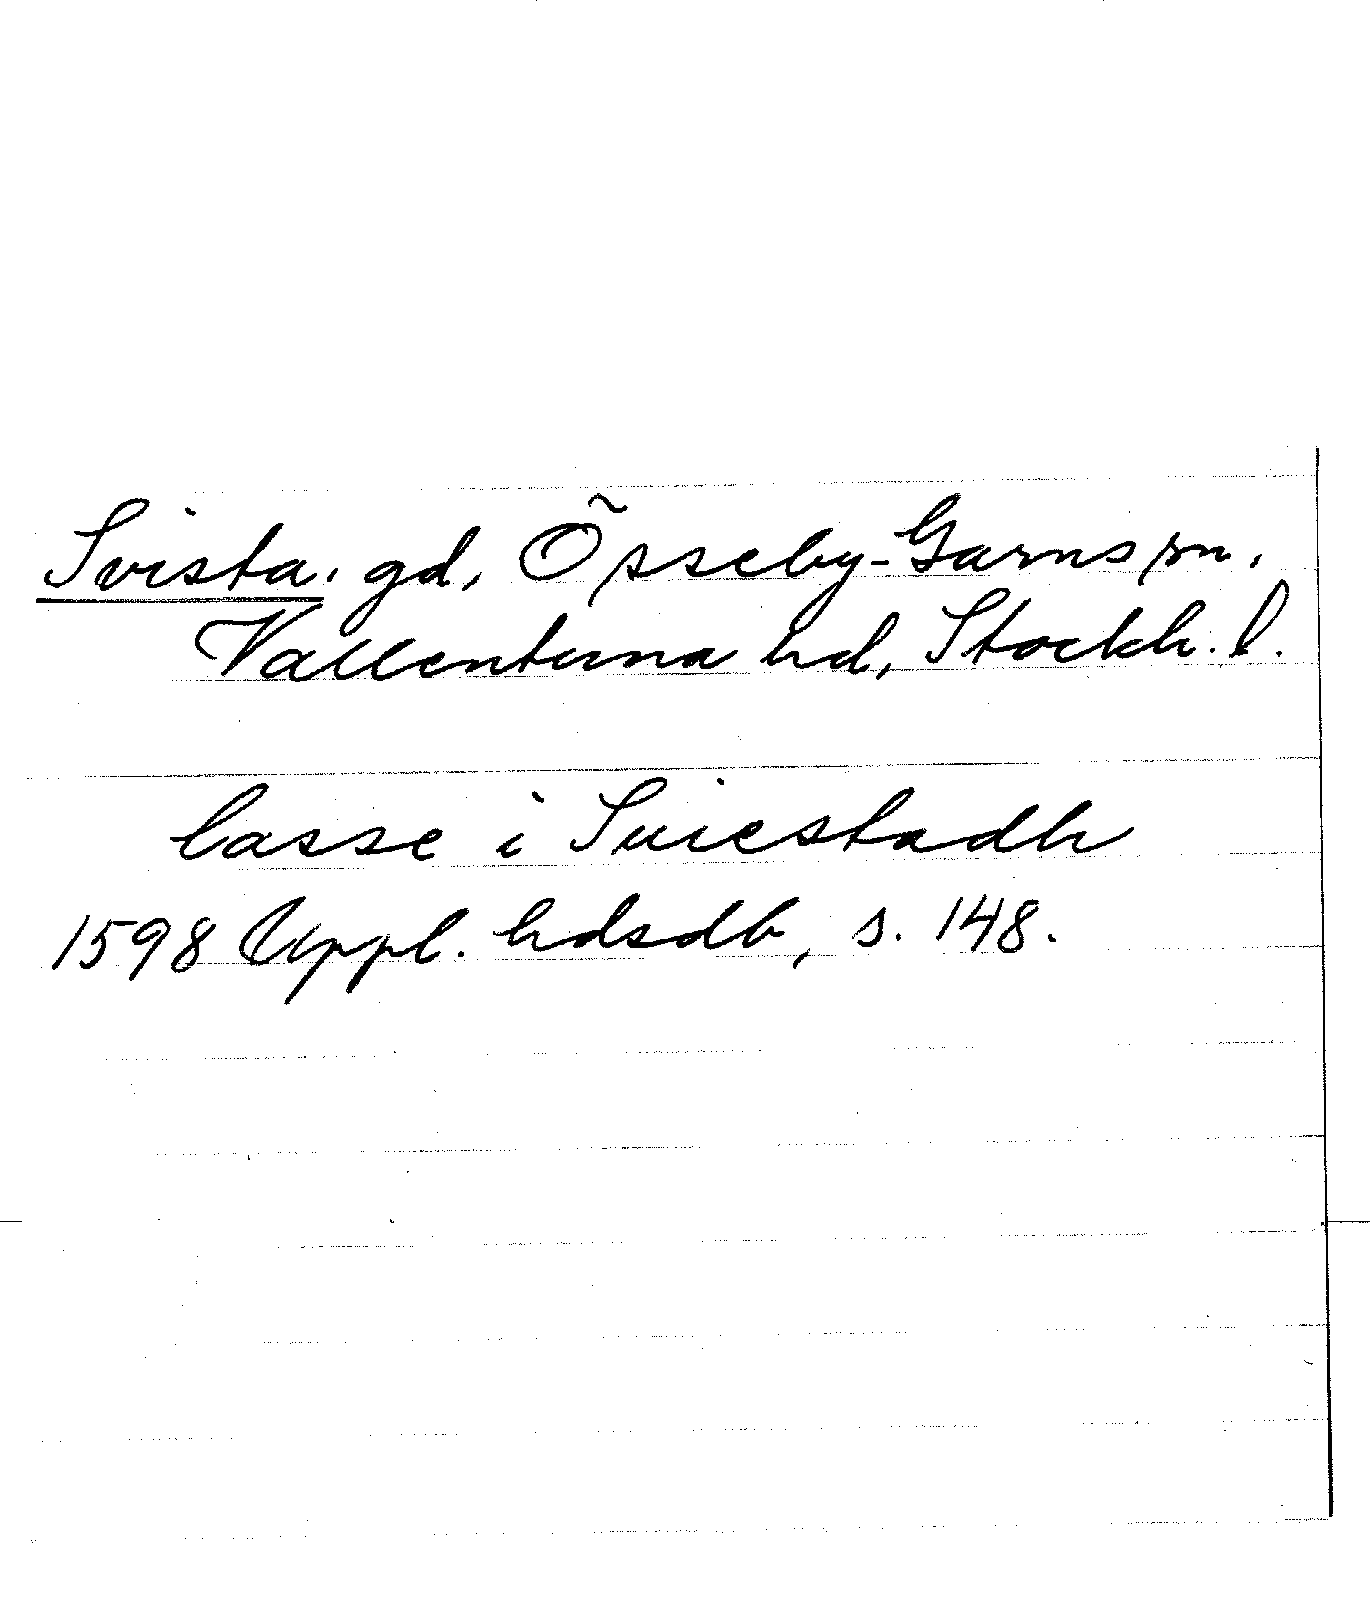 Svista, gd, Össeby-Garns sn,
Vallentuna hd, Stockh. l.
lasse i Suiestadh
1598 Uppl. hdsdb, s. 148.